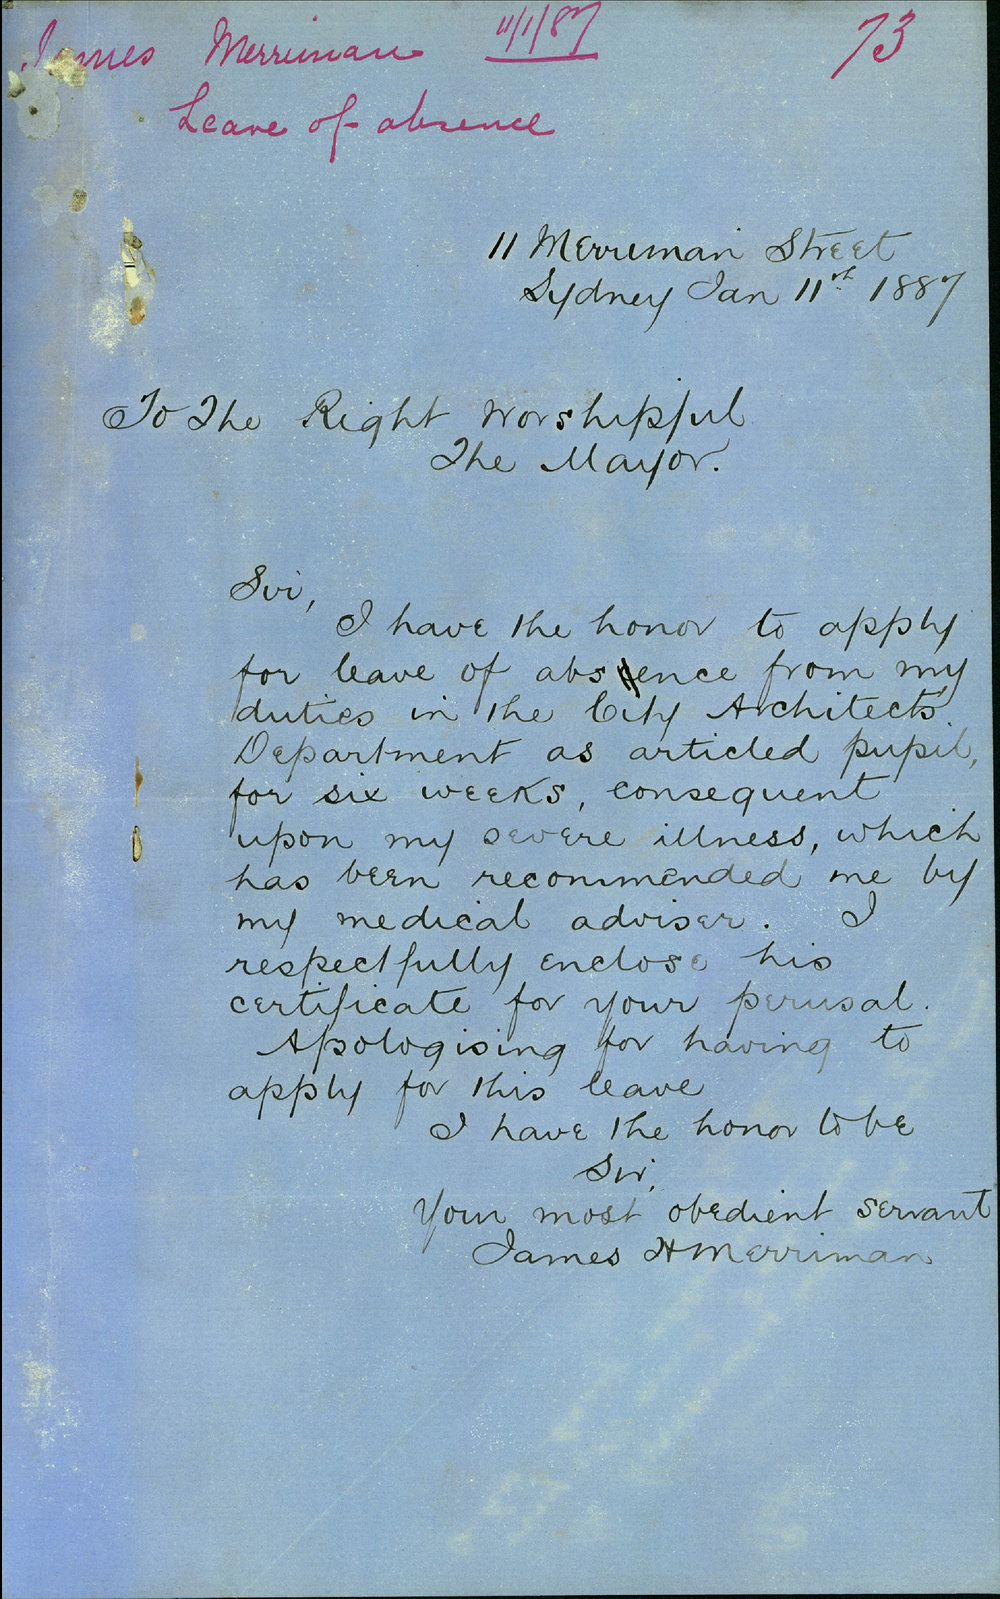 James Merriman 11/1/87 73
Leave of absence
11 Merriman Street
Sydney Jan 11th 1887
To The Right Worshipful
The Mayor.
Sir,
I have the honor to apply
for leave of absence from my
duties in the City Architects
Department as articled pupil,
for six weeks, consequent
upon my severe illness, which
has been recommended me by
my medical adviser. I
respectfully enclose his
certificate for your perusal.
Apologising for having to
apply for this leave
I have the honor to be
Sir,
Your most obedient servant
James H Merriman